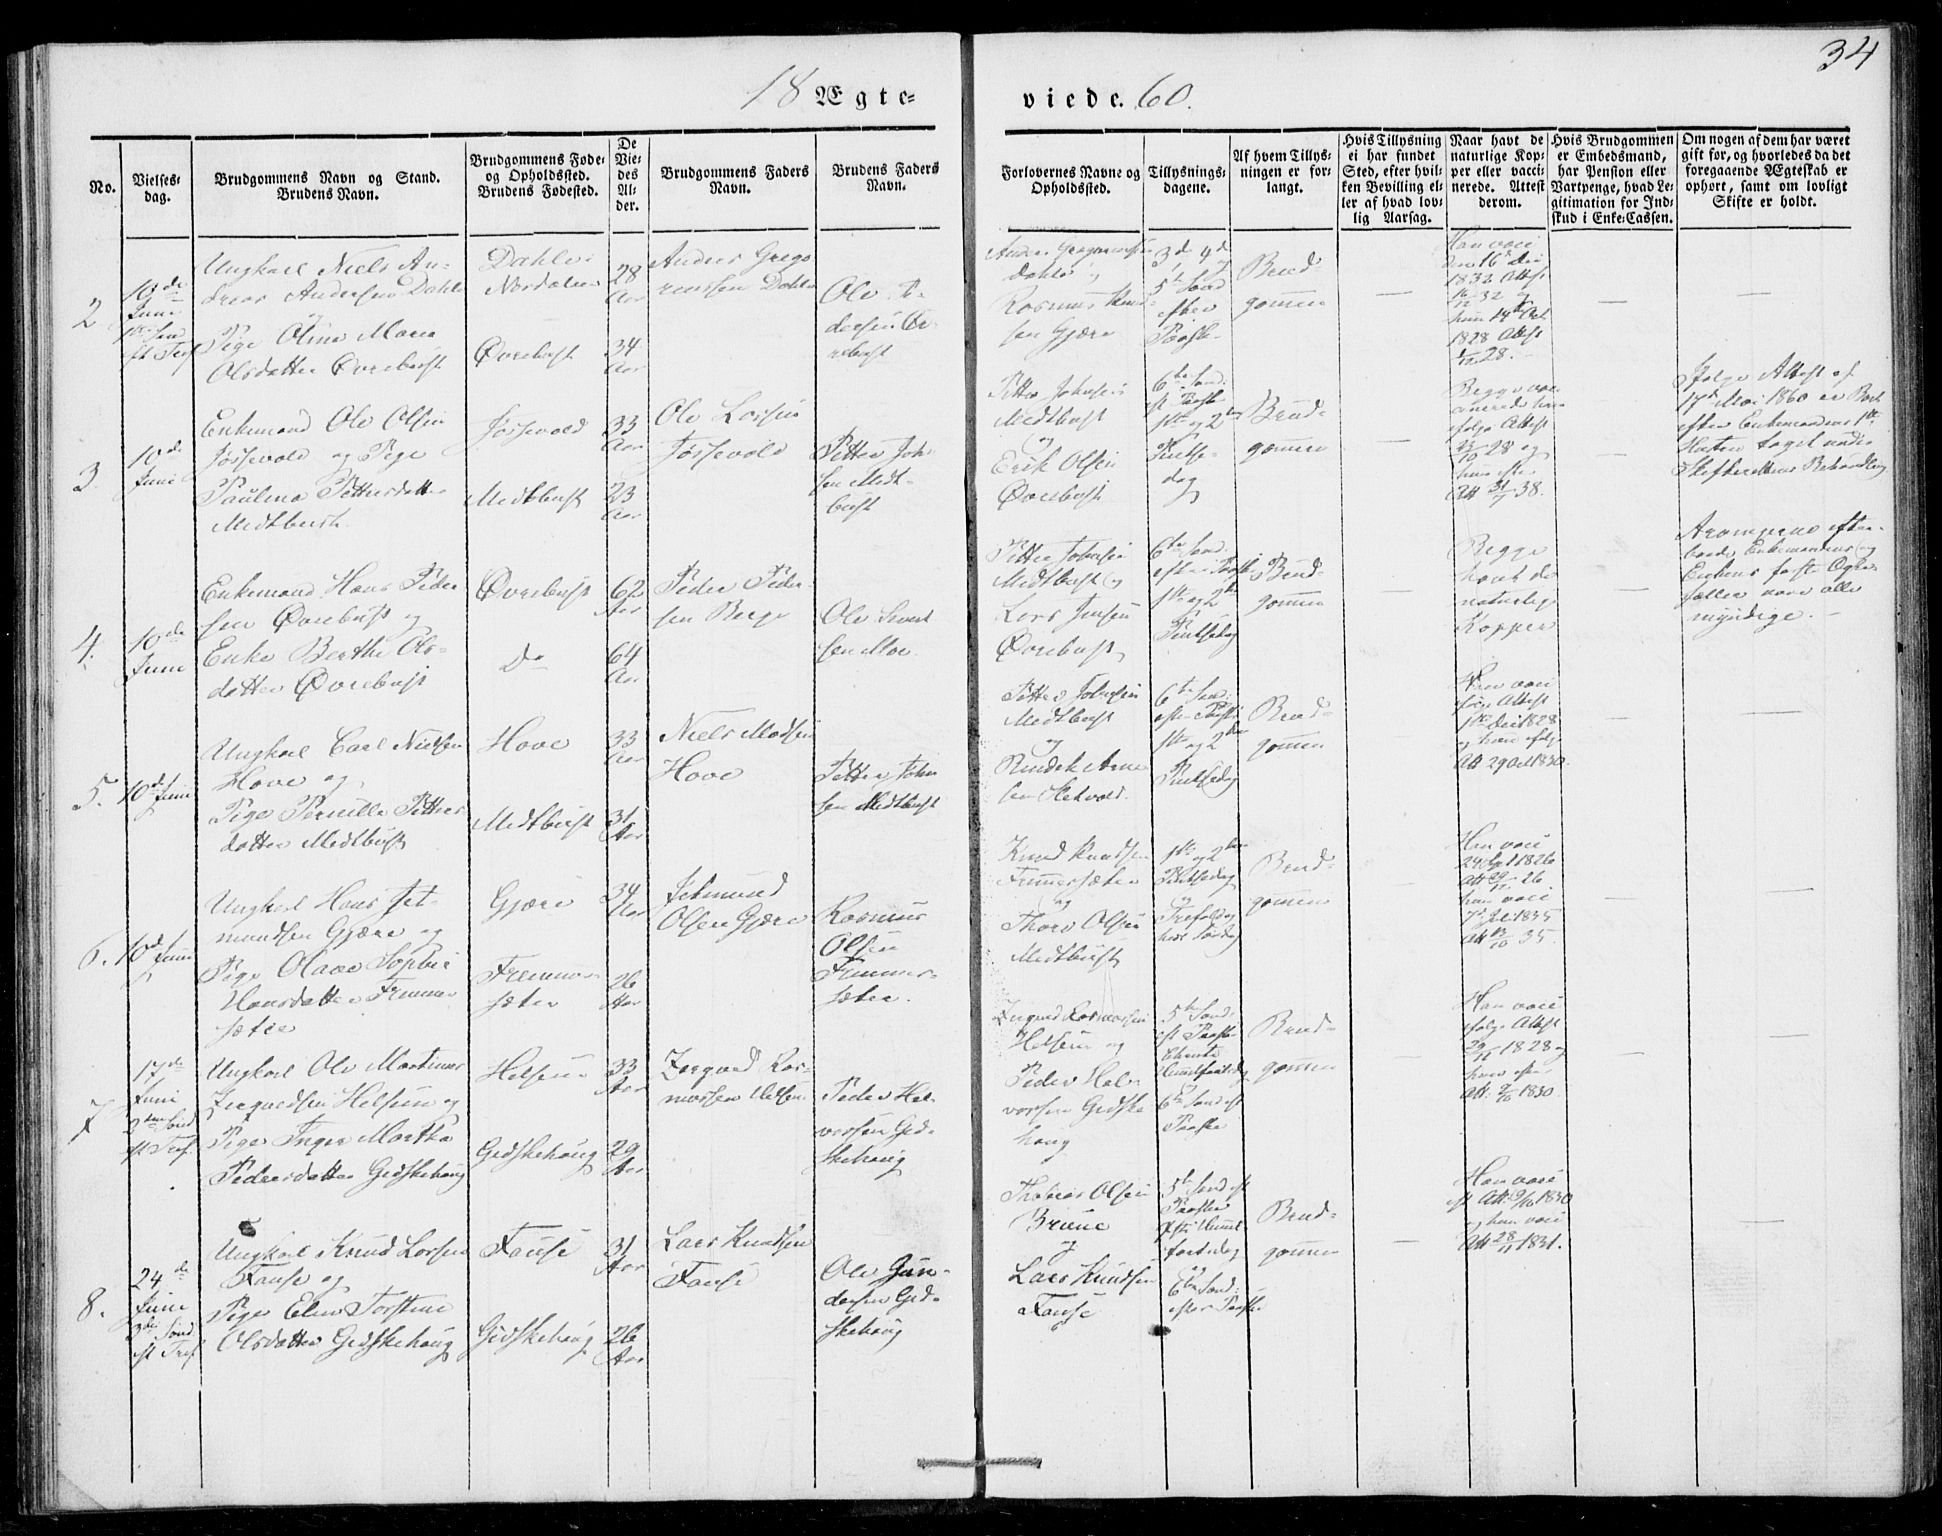 34
18 Ægte-
viede. 60.
No.
Vielses-
dag.
Brudgommens Navn og Stand.
Brudens Navn.
Brudgommens Føde-
og Opholdssted.
Brudens Fødested.
De
Vie-
des
Al-
der.
Brudgommens Faders
Navn.
Brudens Faders
Navn.
Forlovernes Navne og
Opholdssted.
Tillysnings-
dagene.
Af hvem Tillys-
ningen er for-
langt.
Hvis Tillysning
ei har fundet
Sted, efter hvil-
ken Bevilling el-
ler af hvad lov-
lig Aarsag.
Naar havt de
naturlige Kop-
per eller vacci-
nerede. Attest
derom.
Hvis Brudgommen
er Embedsmand,
har Pension eller
Vartpenge, hvad Le-
gitimation for Ind-
skud i Enke-Cassen.
Om nogen af dem har været
gift før, og hvorledes da det
foregaaende Ægteskab er
ophørt, samt om lovligt
Skifte er holdt.
2
10de
Juni
Ungkarl Niels An-
dreas Andersen Dahle
og
Pige Oline Marie
Olsdatter Øvrebust
Dahle i
Norddalen
Øvrebust
28
Aar
34
Aar
Anders Grego
riussen Dahle
Ole Pe-
dersen Øv-
rebust
Anders Gregoriussen
Dahle og
Rasmus Knud-
sen Gjære
3de, 4de
5te Sønd
efter
Paaske
Brud-
gommen
Han vacc
den 16de Dec
1832 Attest
hun 14de Oct
1828 Attest
28.
3.
10de
Juni
Enkemand Ole Olsen
Jøssevold og Pige
Pauline Pettersdatter
Medtbust
Jøssevold
Medtbust
33
Aar
23
Aar
Ole Larsen
Jøssevold
Petter Joh-
sen Medt-
bust
Petter Johnsen
Medtbust
og
Erik Olsen
Øvrebust
6te Sønd.
eft Paaske
1ste og 2den
Pintse-
dag
Brud-
gommen
Begge vac
cinerede han
ifølge Attest
28 og
hun efter
Att 31 38.
Ifølge Attest af
17de Mai 1860 er Boet
efter Enkemandens 1ste
Hustru taget under
Skifterettens Behandling
4.
10de
Juni
Enkemand Hans Peder
sen Øvrebust og
Enke Berthe Ols-
datter Øvrebust
Øvrebust
Do
62
Aar
64
Aar
Peder Peder-
sen Berge
Ole Sivert
sen Moe
Petter Johnsen
Medtbust og
Lars Jensen
Øvrebust
6te Sønd.
efter Paaske
1ste og 2den
Pintsedag
Brud-
gommen
Begge
havt de
naturlige
Kopper
Arvingerne efter
baade Enkemandens og
Enkens første Ægte-
fæller vare alle
myndige.
5.
10de Juni
Ungkarl Carl Nielsen
Hove og
Pige Pernille Petters
datter Medtbust
Hove
Medtbust
33
Aar
31
Aar
Niels Madsen
Hove
Petter John
sen Medtbust
Petter Johnsen
Medtbust
og
6te Sønd.
efter Paaske
1ste og 2den
Pintsedag
Brud-
gommen
Han vacc
følge Attest
1ste Dec 1828
og hun ifølge
Att 29 Oct 1830.
6.
10de Juni
Ungkarl Hans Jet-
mundsen Gjære og
Pige Olave Sophie
Hansdatter Fremmer
sæter
Gjære
Fremmer
sæter
34
Aar
26
Aar
Jetmund
Olsen Gjære
Rasmus
Olsen
Fremmer-
sæter.
Knud Knudsen
Fremmersæter
og
Thore Olsen
Medtbust
1ste og 2den
Pintsedag
og
Trefoldig
heds Søndag
Brud-
gommen
Han vacc
1826
Att 29/11 26
hun vacc
7de Juli 1835
Att 13/10 35.
7
17de
Juni
2den Sønd
eft Tref.
Ungkarl Ole Martinus
Ingvaldsen Helsem og
Pige Inger Martha
Pedersdatter Gidskehaug
Helsem
Gidskehaug
33
Aar
29
Aar
Ingvald Ras-
mussen Helsem
Peder Hal-
vorsen Gid-
skehaug
Ingvald Rasmussen
Helsem og
Peder Hal-
vorsen Gidske
haug
5te Sønd.
eft Paaske
Christi
Himmelfartsdag
6te Sønd eft
Paaske
Brud-
gommen
Han vacc
ifølge Attest
29/11 1828 og
hun efter
Att. 1830.
8.
24de
Juni
3die Sønd
eft Tref
Ungkarl Knud Larsen
Fause og
Pige Elen Torstine
Olsdatter Gidskehaug
Fause
Gidskehaug
31
Aar
26
Aar
Lars Knudsen
Fause
Ole Gun-
dersen Gid-
skehaug
Thomas Olsen
Brune
og
Lars Knudsen
Fause
5te Sønd eft
Paaske
Christi Himmel
fartsdag
og
6te Sønd.
efter Paaske
Brud-
gommen
Han vacc
eft Att: 9/10 1830
og hun vacc
Att 28/11 1831.